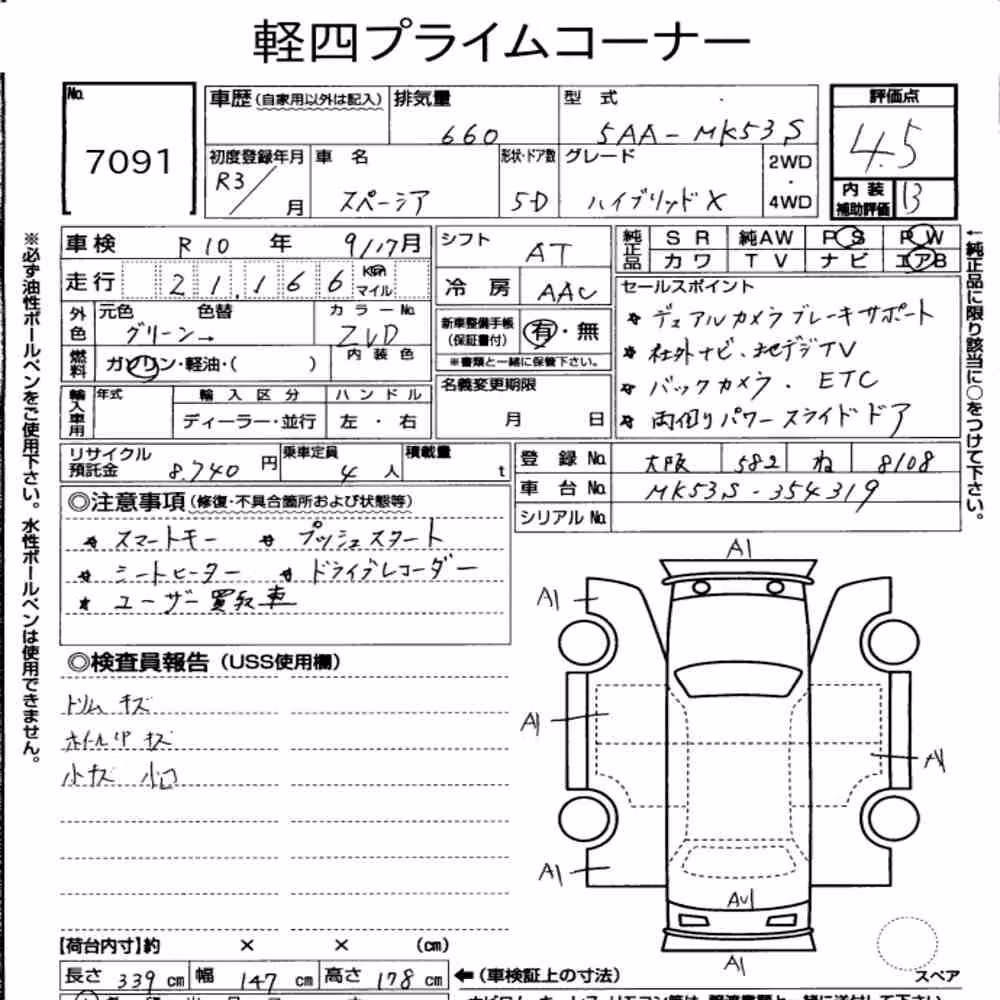 軽四プライムコーナー
No.
7091
車歴(自家用以外は記入)
排気量
660
型 式
5AA-MK53S
評価点
4.5
初度登録年月
R3/ 月
車 名
スペーシア
形状・ドア数
5D
グレード
ハイブリッドX
2WD
・
4WD
内 装
補助評価
B
車検
R10 年 9/17月
シフト
AT
純正品
SR 純AW PS PW
カワ TV ナビ エアB
走行
21,166
Km
マイル
冷 房
AAC
セールスポイント
* デュアルカメラブレーキサポート
* 社外ナビ、地デジTV
* バックカメラ. ETC
* 両側りパワースライドドア
外色
元色 色替
グリーン→
カラーNo.
ZVD
新車整備手帳
(保証書付)
有・無
※書類と一緒に保管下さい。
燃料
ガソリン・軽油・( )
内 装 色
名義変更期限
月 日
輸入車用
年式
輸 入 区 分
ディーラー・並行
ハ ン ド ル
左 ・ 右
リサイクル
預託金
8,740 円
乗車定員
4 人
積載量
t
登 録 No.
大阪 582 ね 8108
車 台 No.
MK53S-354319
シリアル No.
◎注意事項(修復・不具合箇所および状態等)
* スマートキー * プッシュスタート
* シートヒーター * ドライブレコーダー
* ユーザー買取車
◎検査員報告(USS使用欄)
トリム キズ
ホイールリア キズ
小キズ 小凹
A1
A1
A1
A1
A1
AU1
A1
【荷台内寸】約 × × (cm)
長さ 339 cm 幅 147 cm 高さ 178 cm
←(車検証上の寸法)
スペア
※必ず油性ボールペンをご使用下さい。水性ボールペンは使用できません。
←純正品に限り該当に○をつけて下さい。